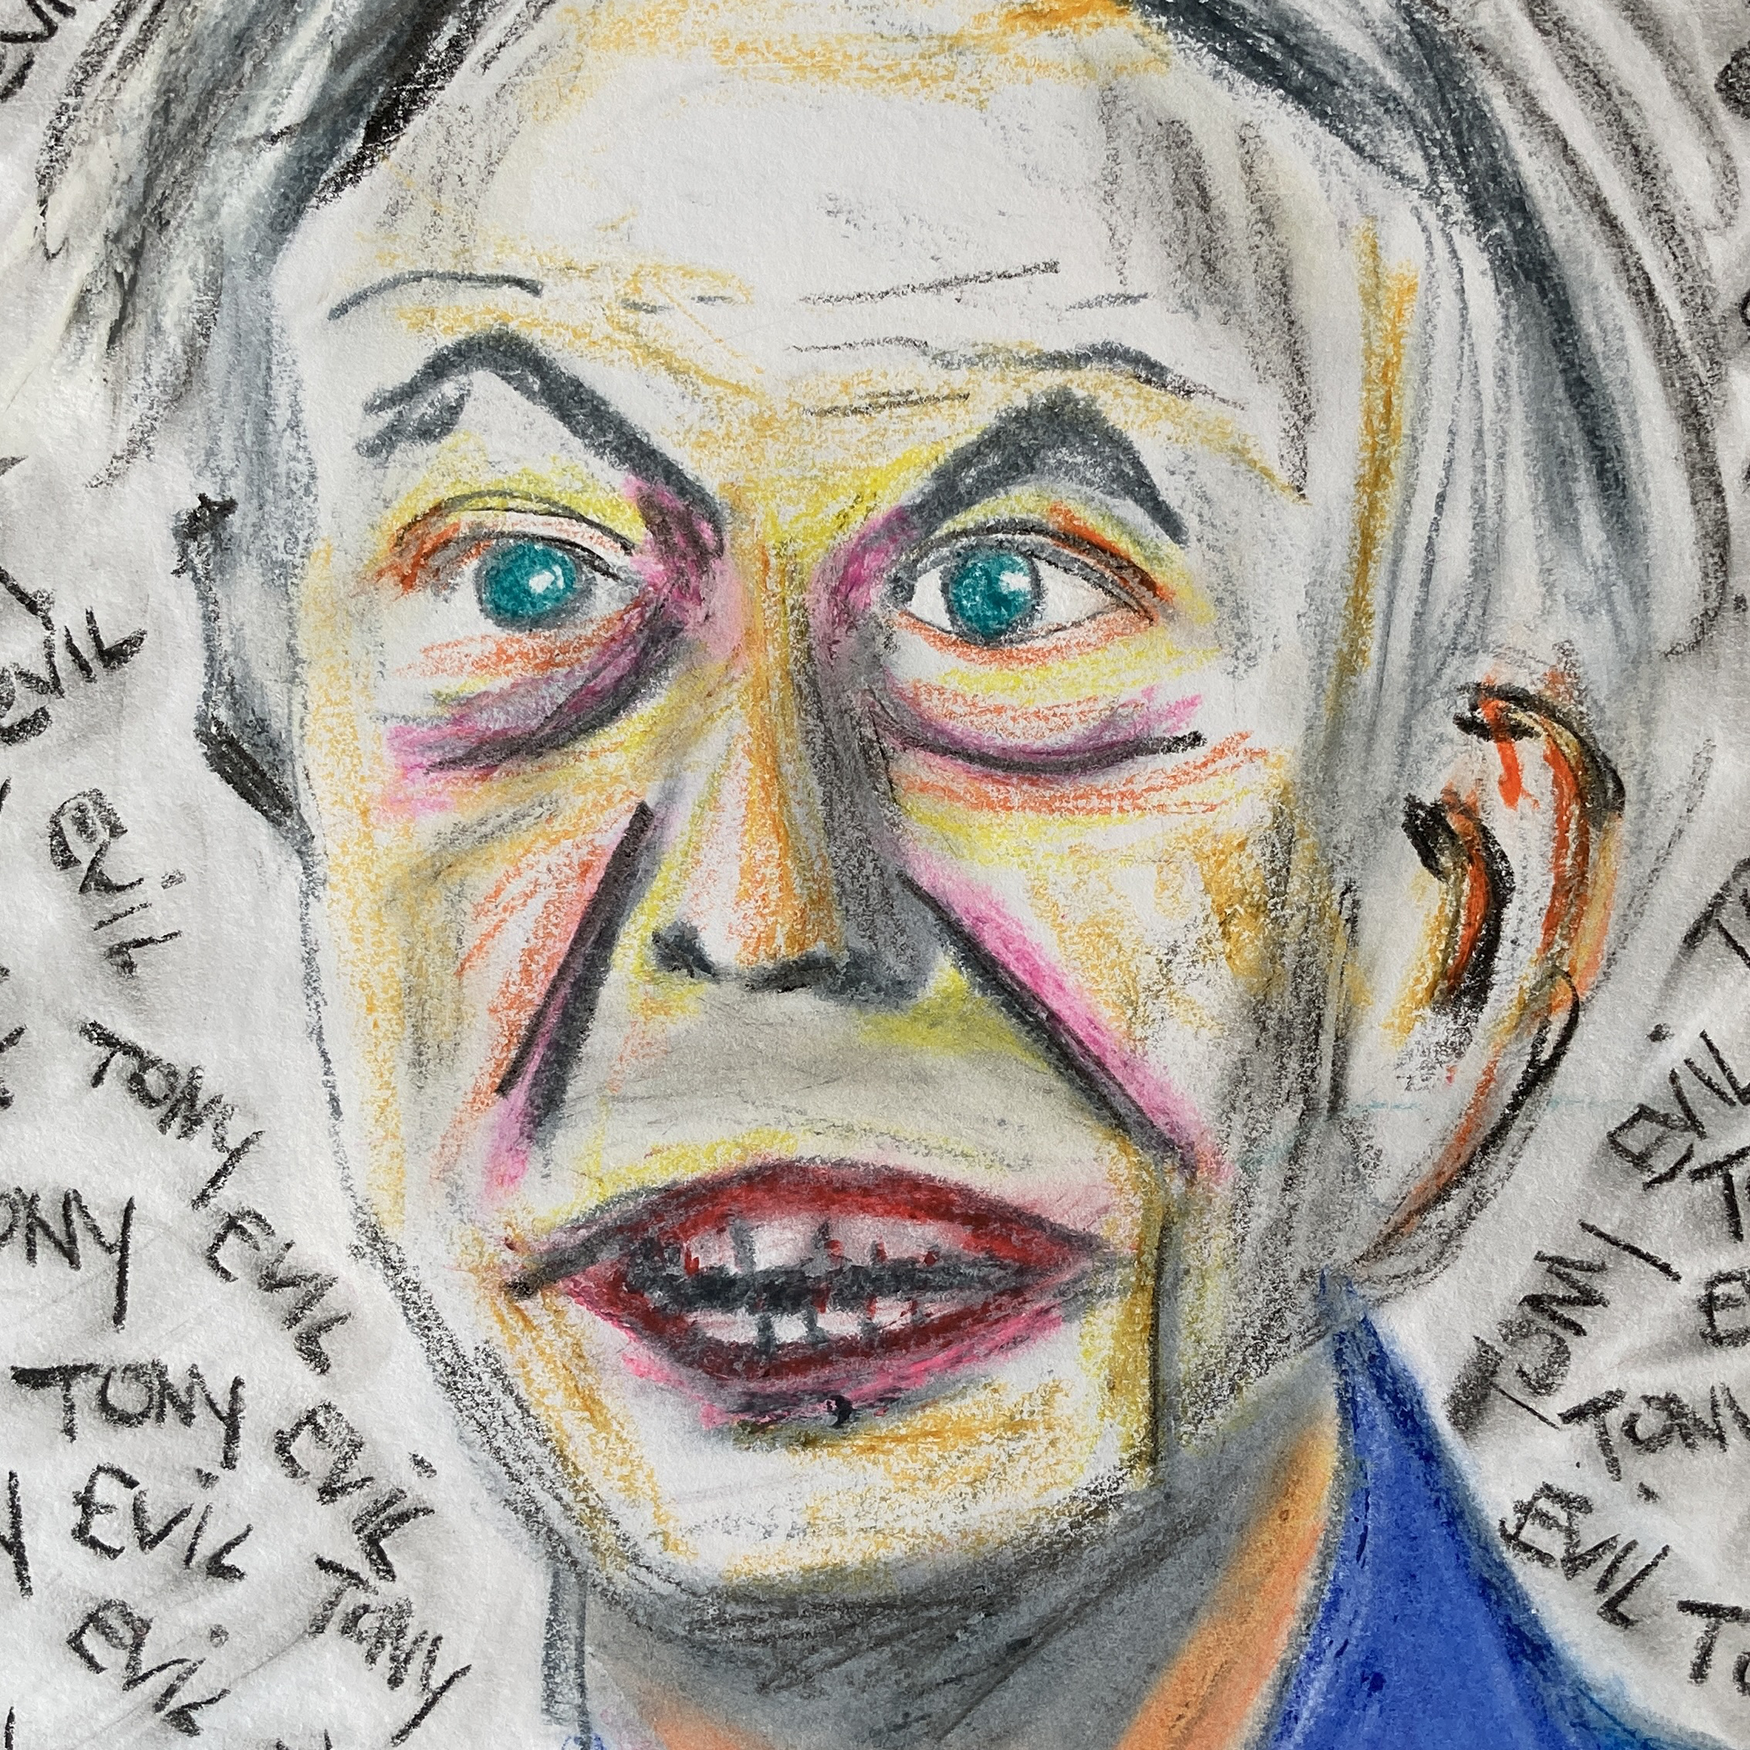 EVIL
EVIL
TONY EVIL
EVIL
TONY
ONY
TONY
EVIL
TONY
TONY
EVIL
EVIL
TONY
EVIL